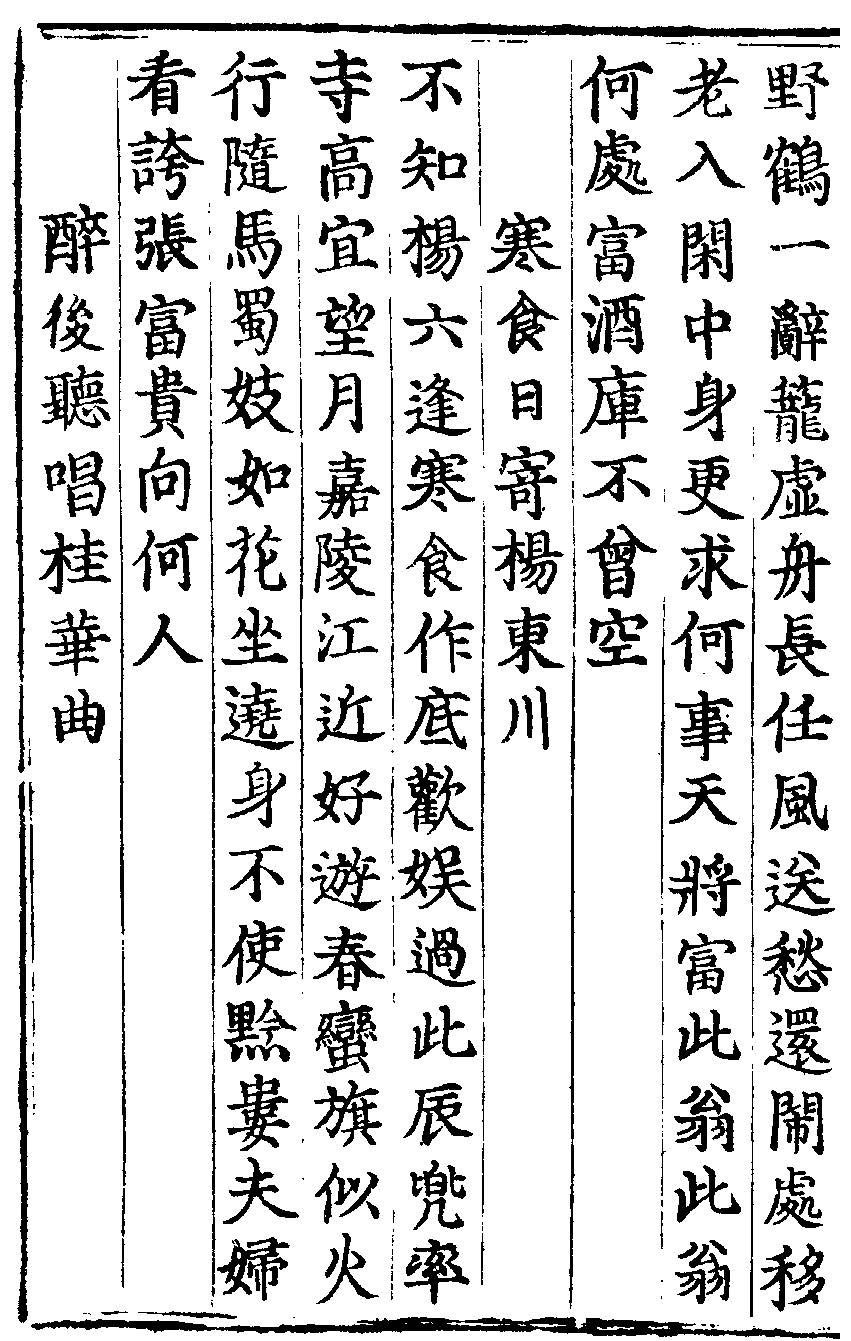 野鶴一辭籠虛舟長任風送愁還鬧處移
老入閑中身更求何事天將富此翁此翁
何處富酒庫不曾空
寒食日寄楊東川
不知楊六逢寒食作底歡娛過此辰兜率
寺高宜望月嘉陵江近好遊春蠻旗似火
行隨馬蜀妓如花坐遶身不使黔婁夫婦
看誇張富貴向何人
醉後聽唱桂華曲